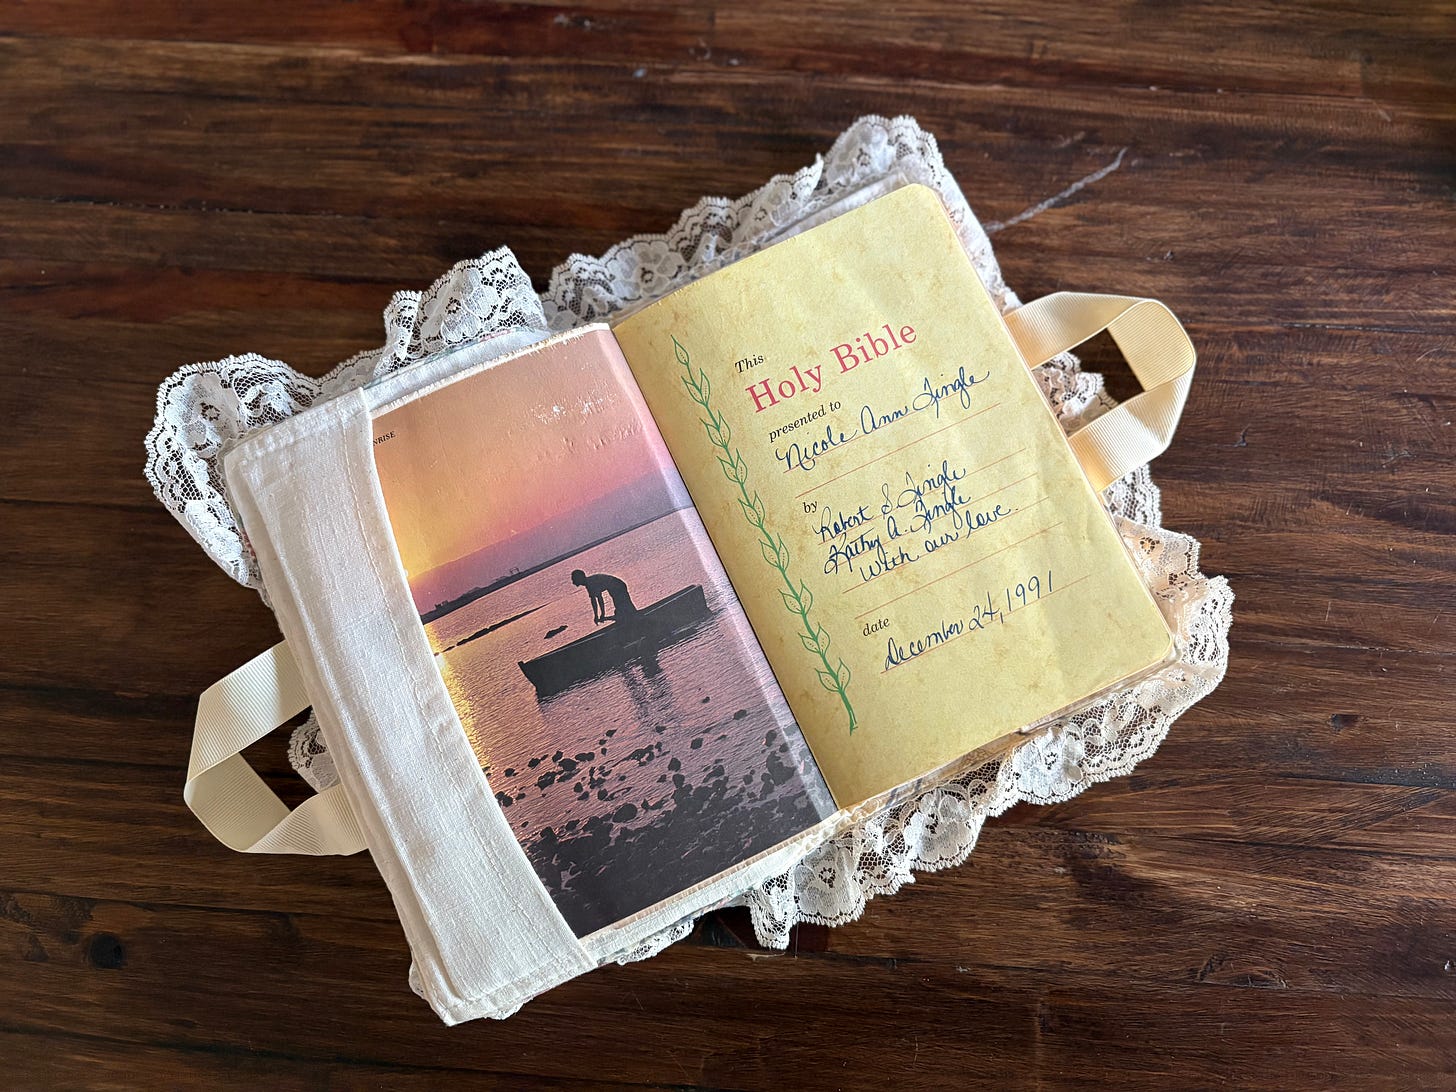 NRISE
This
Holy Bible
presented to
Nicole Ann Tingle
by
Robert S. Tingle
Kathy A. Tingle
With our love.
date
December 24, 1991